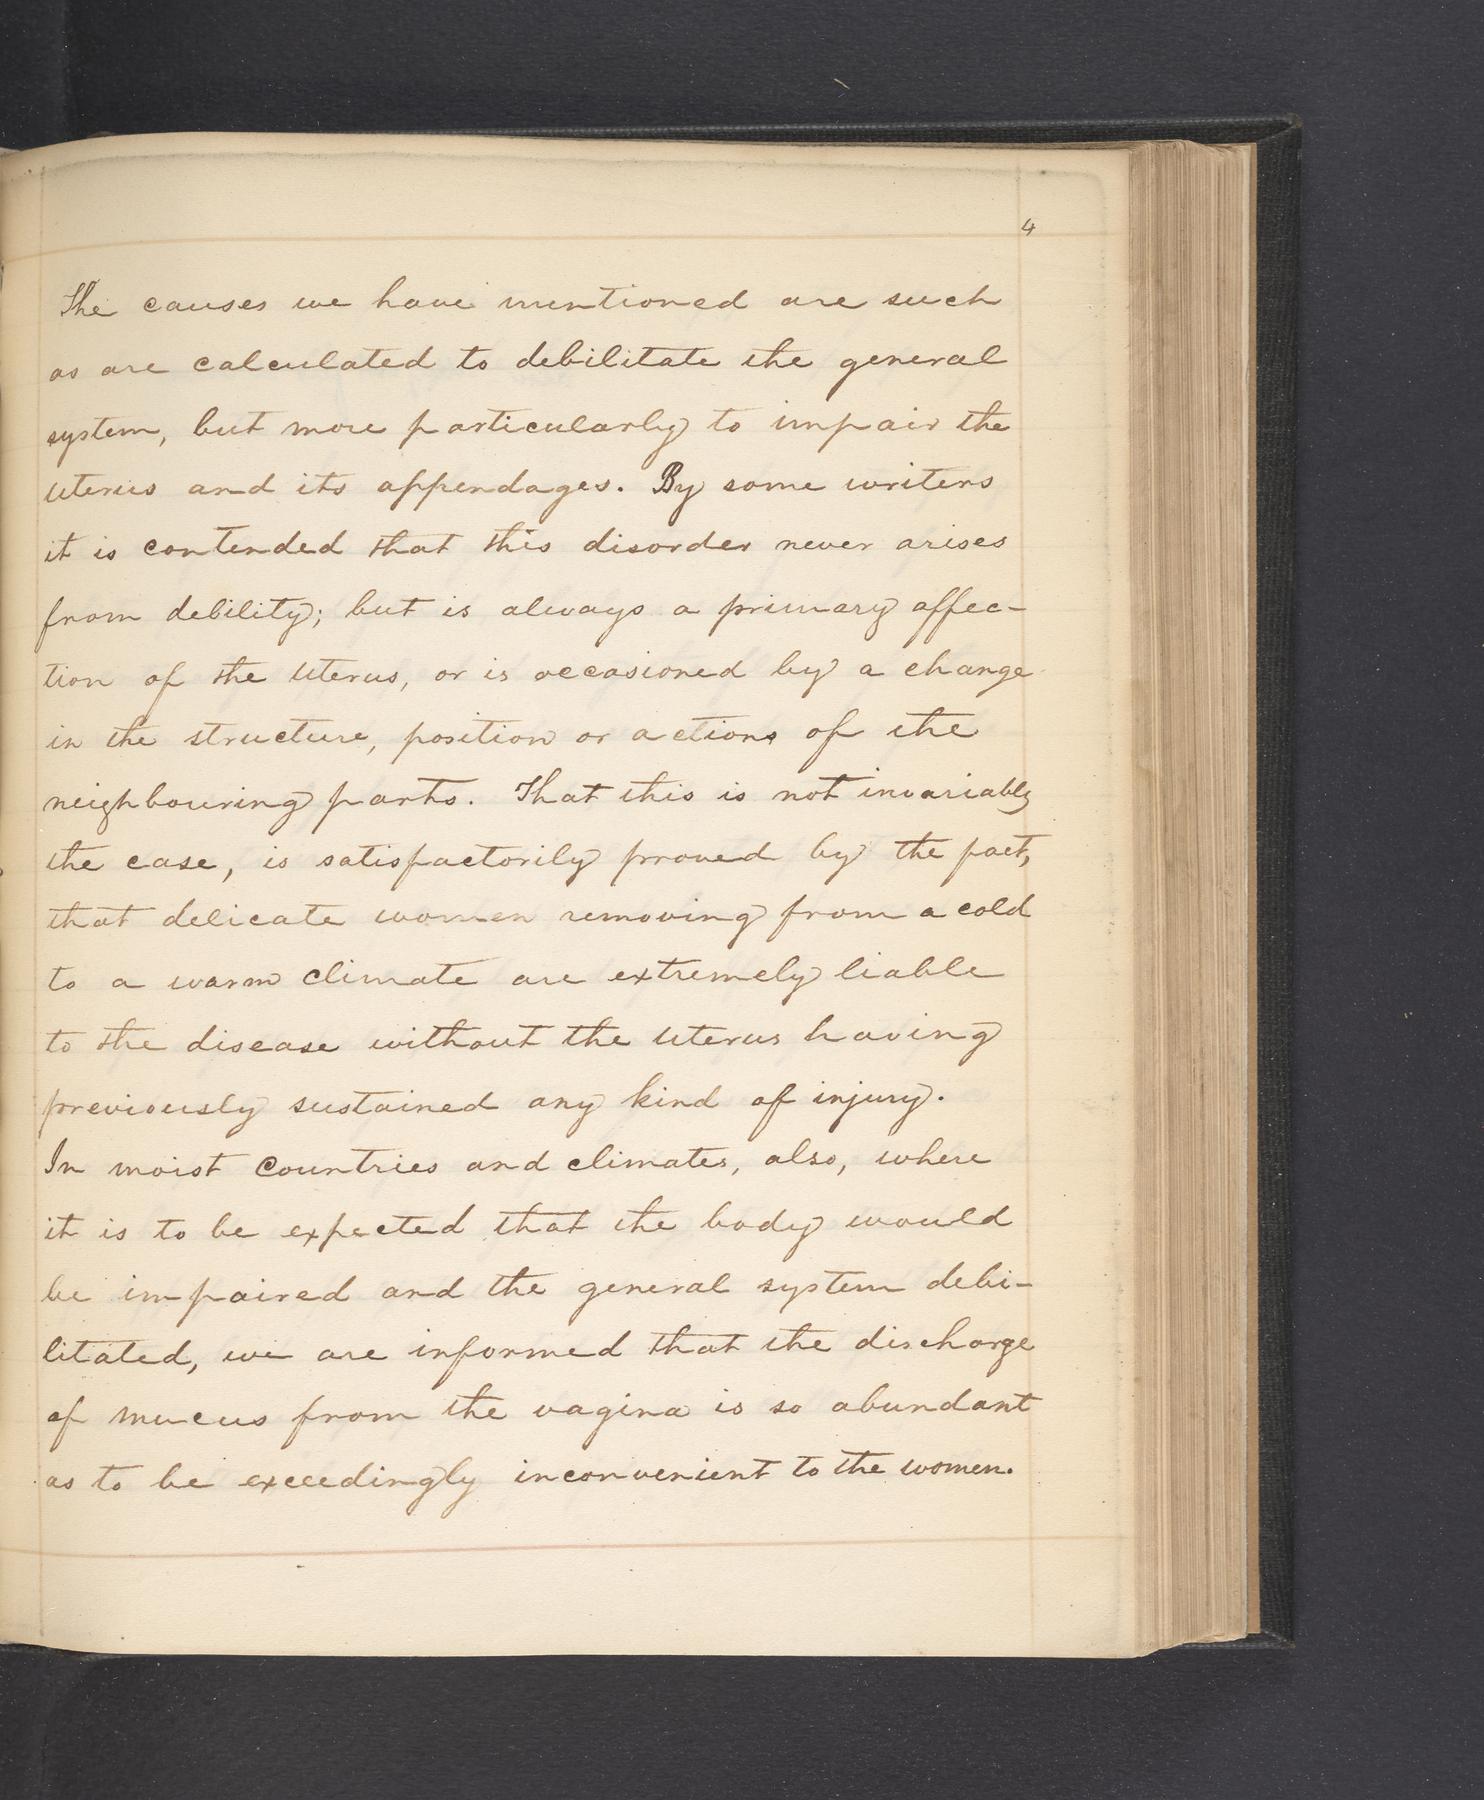 4
The causes we have mentioned are such
as are calculated to debilitate the general
system, but more particularly to impair the
uterus and its appendages. By some writers
it is contended that this disorder never arises
from debility; but is always a primary affec-
tion of the uterus, or is occasioned by a change
in the structure, position or actions of the
neighbouring parts. That this is not invariably
the case, is satisfactorily proved by the fact,
that delicate women removing from a cold
to a warm climate are extremely liable
to the disease without the uterus having
previously sustained any kind of injury.
In moist Countries and climates, also, where
it is to be expected that the body would
be impaired and the general system debi-
litated, we are informed that the discharge
of mucus from the vagina is so abundant
as to be exceedingly inconvenient to the women.